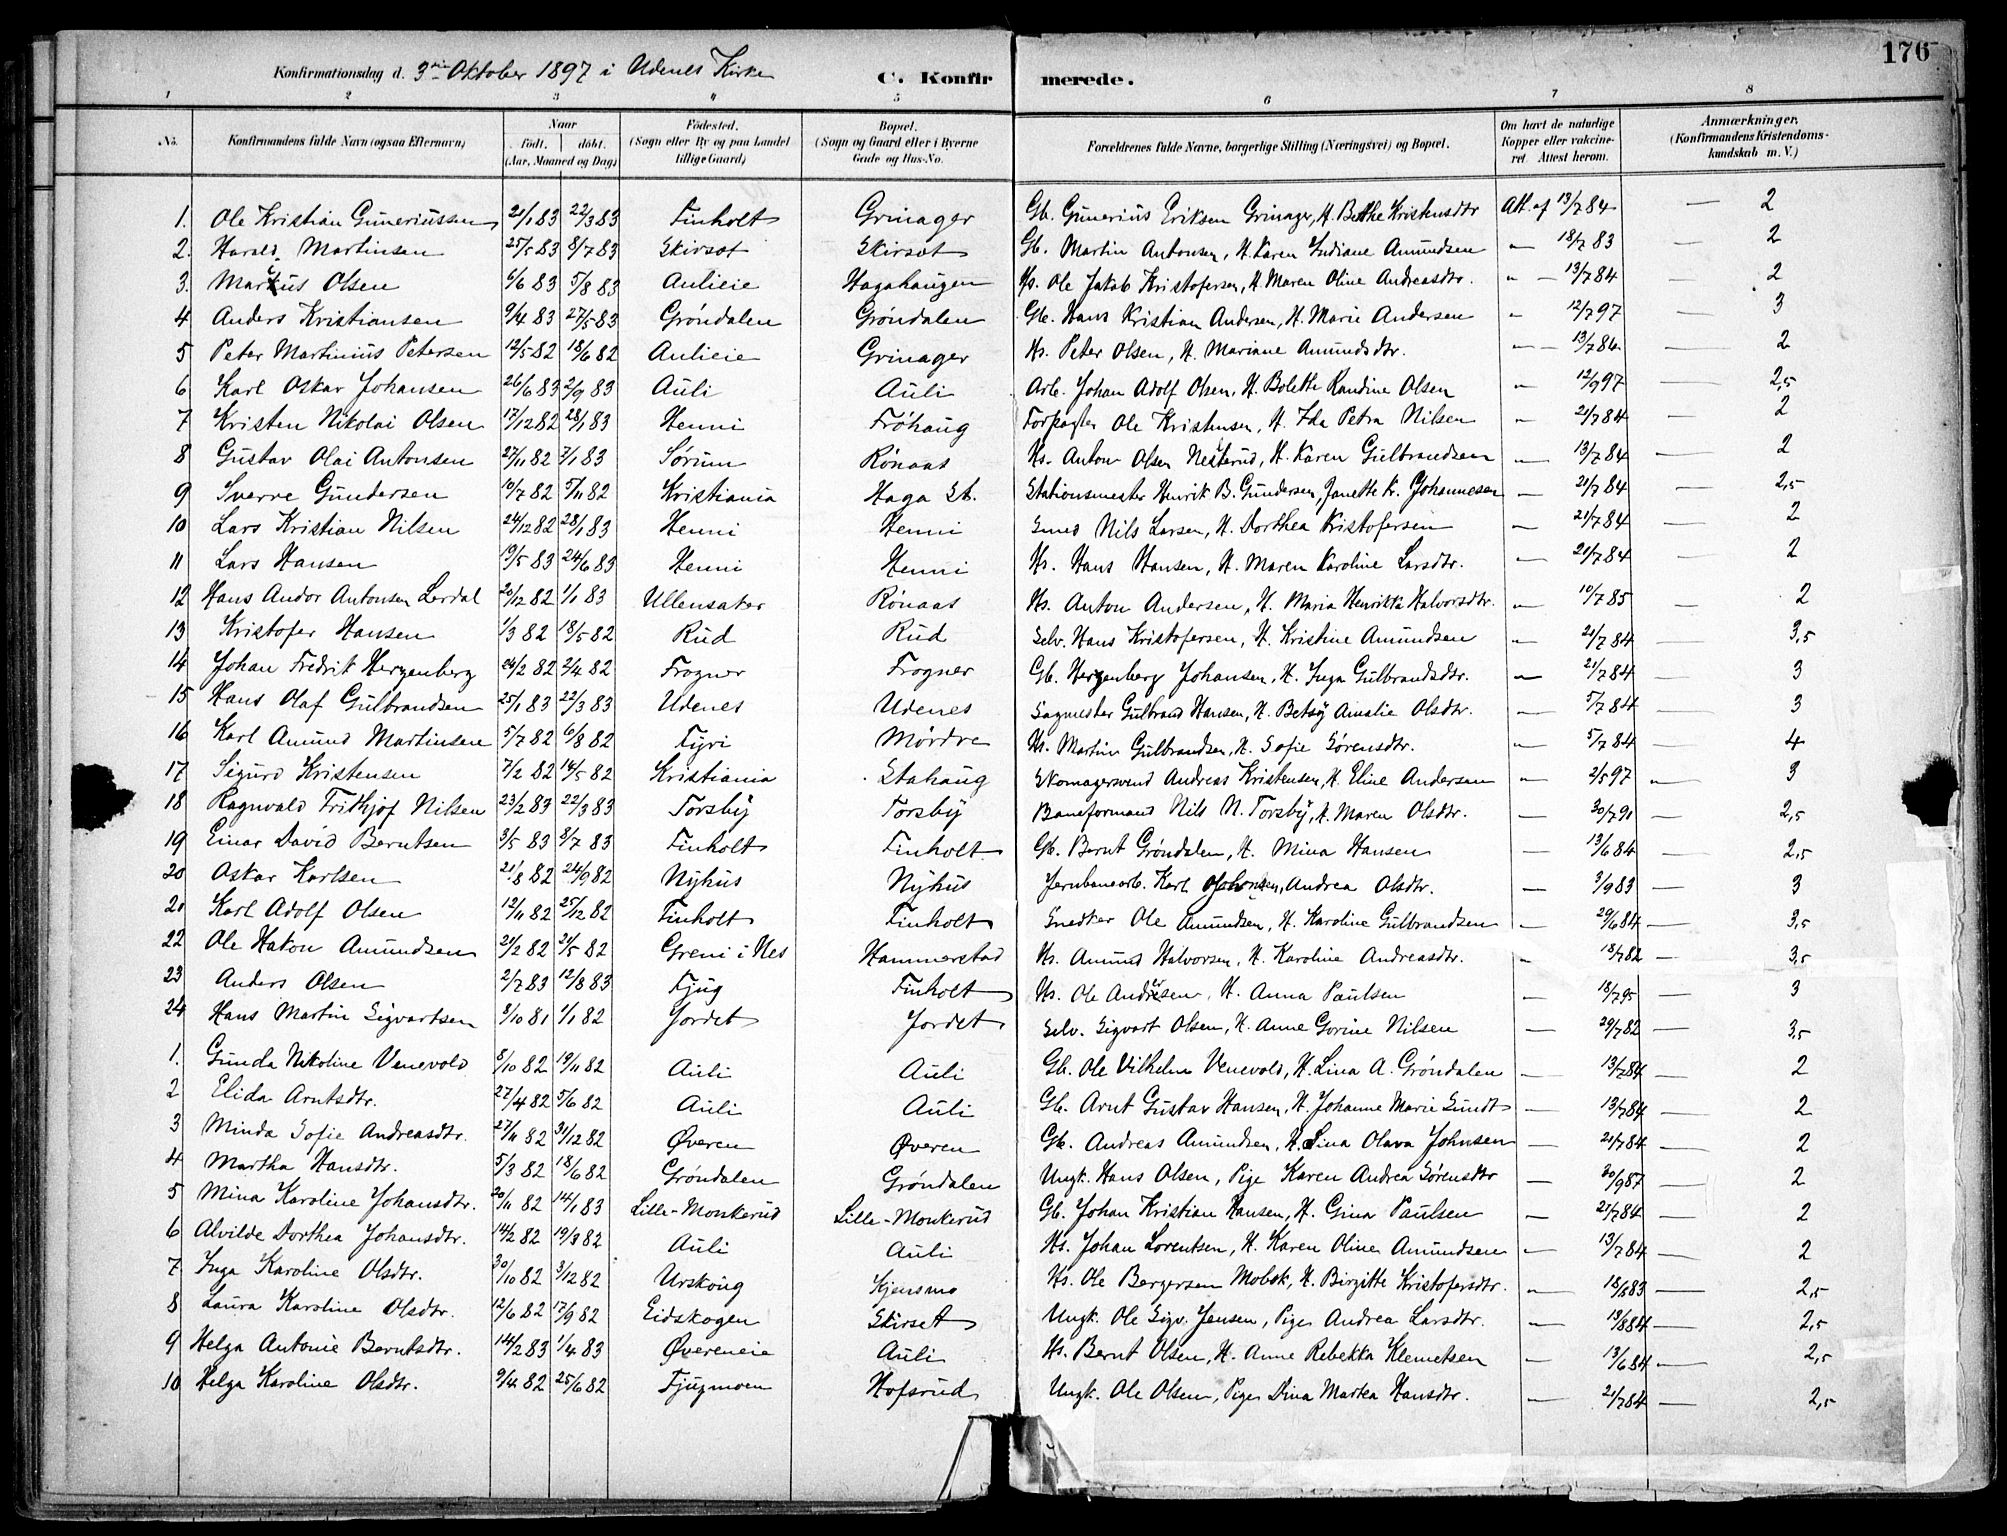 176
Konfirmationsdag d. 3die Oktober 1897 i Udenes Kirke C. Konfirmerede.
1 2 3 4 5 6 7 8
No. Konfirmandens fulde Navn (ogsaa Efternavn) Naar født. døbt. (Aar, Maaned og Dag) Fødested. (Sogn eller By og paa Landet tillige Gaard) Bopæl. (Sogn og Gaard eller i Byerne Gade og Hus-No. Forældrenes fulde Navne, borgerlige Stilling (Næringsvei) og Bopæl. Om havt de naturlige Kopper eller vakcineret. Attest herom. Anmærkninger. (Konfirmandens Kristendomskundskab m. V.)
1. Ole Kristian Guneriussen 21/1 83 22/3 83 Finholt Grinager Gb. Gunerius Eriksen Grinager, H. Berthe Kristensdtr Att. af 13/7 84 — 2
2. Harald Martinsen 25/5 83 8/7 83 Skirsot Skirsot Gb. Martin Antonsen, H. Karen Indiane Amundsen " — 18/7 83 — 2
3. Markus Olsen 6/6 83 5/8 83 Aulieie Hagahaugen Hs. Ole Jakob Kristofersen, H. Maren Oline Andreasdtr. " — 13/7 84 — 2
4 Anders Kristiansen 9/4 83 27/5 83 Gröndalen Gröndalen Gb. Hans Kristian Andersen, H. Marie Andersen " 12/7 97 — 3
5 Peter Martinius Petersen 12/5 82 18/6 82 Aulieie Grinager Hs. Peter Olsen, H. Mariane Amundsdtr. — 13/7 86 — 2
6 Karl Oskar Johansen 26/6 83 2/9 83 Auli Auli Arb. Johan Adolf Olsen, H. Bolette Randine Olsen " 12/9 97 — 2,5
7 Kristen Nikolai Olsen 17/12 82 28/1 83 Henni Fröhaug Forpagter Ole Kristensen, H. Ida Petra Nilsen " 21/7 84 — 2
8 Gustav Olai Antonsen 27/11 82 7/1 83 Sørum Rönaas Hs. Anton Olsen Nesterud, H. Karen Gulbrandsen — 13/7 84 — 2
9 Sverre Gundersen 10/7 82 5/11 82 Kristiania Haga St. Stationsmester Henrik B. Gundersen, Janette K. Johannesen — 21/7 84 — 2,5
10 Lars Kristian Nilsen 24/12 82 28/1 83 Henni Henni Smed Nils Larsen, H. Dorthea Kristofersen — 21/7 84 — 2
11 Lars Hansen 19/5 83 24/6 83 Henni Henni Hs. Hans Hansen, H. Maren Karoline Larsdtr. — 21/7 84 — 2
12 Hans Andor Antonsen Lerdal 20/12 82 1/1 83 Ullensaker Rönaas Hs. Anton Andersen, H. Maria Henrikka Halvorsdtr. — 10/7 85 — 2
13 Kristofer Hansen 1/3 82 18/5 82 Rud Rud Selv. Hans Kristofersen, H. Kristine Amundsen — 21/7 84 — 3,5
14 Johan Fredrik Hergenberg 24/2 82 2/4 82 Frogner Frogner Gb. Hergenberg Johansen, H. Inga Gulbrandsdtr. — 21/7 84 — 3
15 Hans Olaf Gulbrandsen 25/1 83 22/3 83 Udenes Udenes Sagmester Gulbrand Hansen, H. Betsy Amalie Olsdtr. — 5/7 84 — 3
16 Karl Amund Martinsen 5/7 82 6/8 82 Fyri Mördre Hs. Martin Gulbrandsen, H. Sofie Sörensdtr. — 5/7 84 — 4
17 Sigurd Kristensen 7/2 82 14/5 82 Kristiania Stahaug Skomagersvend Andreas Kristensen, H. Eline Andersen — 2/5 97 — 3
18 Ragnvald Frithjof Nilsen 23/2 83 22/3 83 Torsby Torsby Baneformand Nils N. Torsby, H. Maren Olsdtr. — 30/7 91 — 2,5
19 Einar David Berntsen 3/5 83 8/7 83 Finholt Finholt Gb. Bernt Gröndalen, H. Mina Hansen — 13/6 84 — 2,5
20 Oskar Karlsen 21/8 82 24/9 82 Nyhus Nyhus Jernbanearb. Karl Johansen, Andrea Olsdtr. — 3/9 83 — 3
21 Karl Adolf Olsen 12/11 82 25/12 82 Finholt Finholt Snedker Ole Amundsen, H. Karoline Gulbrandsen — 29/6 84 — 3,5
22 Ole Hakon Amundsen 21/2 82 21/5 82 Greni i Nes Hammerstad Hs. Amund Halvorsen, H. Karoline Andreasdtr. — 18/7 82 — 3,5
23 Anders Olsen 2/7 83 12/8 83 Fjug Finholt Hs. Ole Andresen, H. Anna Paulsen — 18/7 95 — 3
24 Hans Martin Sigvartsen 8/10 81 1/1 82 Jordet Jordet Selv. Sigvart Olsen, H. Anne Gorine Nilsen — 29/7 82 — 3,5
1. Gunda Nikoline Venevold 8/10 82 19/11 82 Auli Auli Gb. Ole Vilhelm Venevold, H. Lina A. Gröndalen — 13/7 84 — 2
2 Elida Arntsdtr. 27/4 82 5/6 82 Auli Auli Gb. Arnt Gustav Hansen, H. Johanne Marie Sundt — 13/7 84 — 2
3 Minda Sofie Andreasdtr. 27/11 82 31/12 82 Øveren Øveren Gb. Andreas Amundsen, H. Lina Olava Johnsen — 21/7 84 — 2
4 Martha Hansdtr. 5/3 82 18/6 82 Gröndalen Gröndalen Ungk. Hans Olsen, Pige Karen Andrea Sörensdtr — 20/9 87 — 2
5 Mina Karoline Johansdtr. 20/11 82 14/1 83 Lille-Monkerud Lille-Monkerud Gb. Johan Kristian Hansen, H. Gina Paulsen — 21/7 84 — 2
6 Alvilde Dorthea Johansdtr. 14/2 82 19/3 82 Auli Auli Hs. Johan Lorentsen, H. Karen Oline Amundsen — 13/7 84 — 2
7 Inga Karoline Olsdtr. 30/10 82 3/12 82 Urskoug Kjensmo Hs. Ole Bergersen Mobak, H. Birgitte Kristofersdtr. — 18/6 83 — 2,5
8 Laura Karoline Olsdtr. 12/6 82 17/9 82 Eidskogen Skirset Ungk. Ole Sigv. Jensen, Pige Andrea Larsdtr. — 13/8 84 — 2,5
9 Helga Antonie Berntsdtr. 14/2 83 1/4 83 Øvereneie Auli Hs. Bernt Olsen, H. Anne Rebekka Klemetsen — 13/6 84 — 2,5
10 Helga Karoline Olsdtr. 9/4 82 25/6 82 Fjugmoen Hofsrud Ungk. Ole Olsen, Pige Dina Martea Hansdtr. — 21/7 84 — 2,5